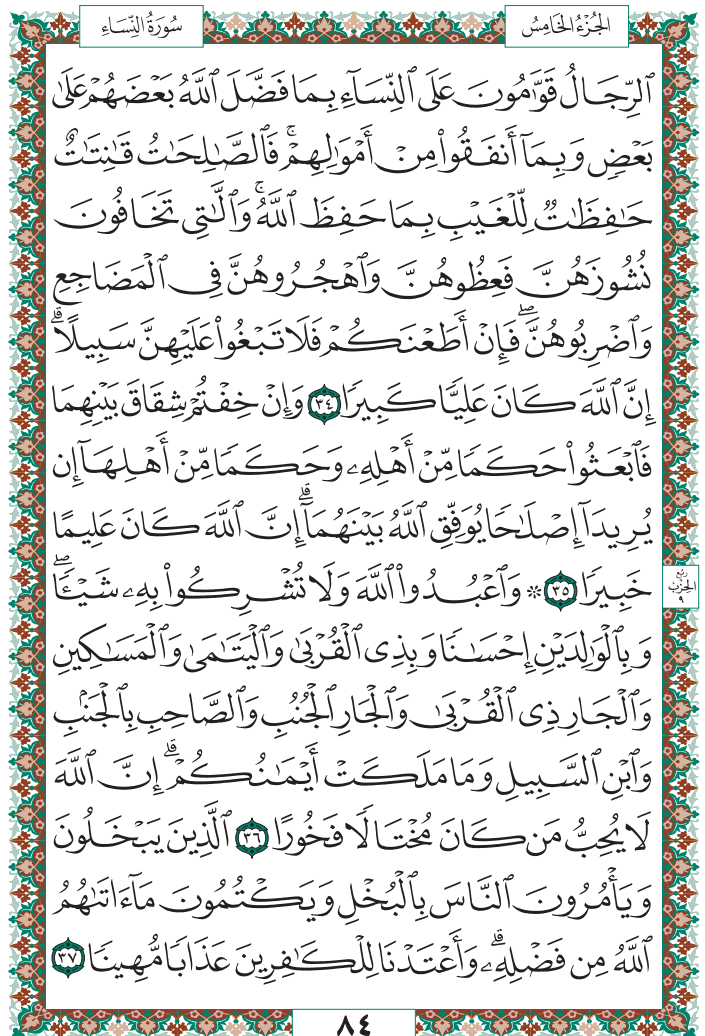 الجُزْءُ الخَامِسُ
سُورَةُ النِّسَاءِ
ٱلرِّجَالُ قَوَّٰمُونَ عَلَى ٱلنِّسَآءِ بِمَا فَضَّلَ ٱللَّهُ بَعۡضَهُمۡ عَلَىٰ
بَعۡضٖ وَبِمَآ أَنفَقُواْ مِنۡ أَمۡوَٰلِهِمۡۚ فَٱلصَّٰلِحَٰتُ قَٰنِتَٰتٌ
حَٰفِظَٰتٞ لِّلۡغَيۡبِ بِمَا حَفِظَ ٱللَّهُۚ وَٱلَّٰتِي تَخَافُونَ
نُشُوزَهُنَّ فَعِظُوهُنَّ وَٱهۡجُرُوهُنَّ فِي ٱلۡمَضَاجِعِ
وَٱضۡرِبُوهُنَّۖ فَإِنۡ أَطَعۡنَكُمۡ فَلَا تَبۡغُواْ عَلَيۡهِنَّ سَبِيلًاۗ
إِنَّ ٱللَّهَ كَانَ عَلِيّٗا كَبِيرٗا ٣٤ وَإِنۡ خِفۡتُمۡ شِقَاقَ بَيۡنِهِمَا
فَٱبۡعَثُواْ حَكَمٗا مِّنۡ أَهۡلِهِۦ وَحَكَمٗا مِّنۡ أَهۡلِهَآ إِن
يُرِيدَآ إِصۡلَٰحٗا يُوَفِّقِ ٱللَّهُ بَيۡنَهُمَآۗ إِنَّ ٱللَّهَ كَانَ عَلِيمًا
خَبِيرٗا ٣٥ ۞ وَٱعۡبُدُواْ ٱللَّهَ وَلَا تُشۡرِكُواْ بِهِۦ شَيۡـٔٗاۖ
وَبِٱلۡوَٰلِدَيۡنِ إِحۡسَٰنٗا وَبِذِي ٱلۡقُرۡبَىٰ وَٱلۡيَتَٰمَىٰ وَٱلۡمَسَٰكِينِ
وَٱلۡجَارِ ذِي ٱلۡقُرۡبَىٰ وَٱلۡجَارِ ٱلۡجُنُبِ وَٱلصَّاحِبِ بِٱلۡجَنۢبِ
وَٱبۡنِ ٱلسَّبِيلِ وَمَا مَلَكَتۡ أَيۡمَٰنُكُمۡۗ إِنَّ ٱللَّهَ
لَا يُحِبُّ مَن كَانَ مُخۡتَالٗا فَخُورًا ٣٦ ٱلَّذِينَ يَبۡخَلُونَ
وَيَأۡمُرُونَ ٱلنَّاسَ بِٱلۡبُخۡلِ وَيَكۡتُمُونَ مَآ ءَاتَىٰهُمُ
ٱللَّهُ مِن فَضۡلِهِۦۗ وَأَعۡتَدۡنَا لِلۡكَٰفِرِينَ عَذَابٗا مُّهِينٗا ٣٧
رُبْع
الحِزْب
٩
٨٤